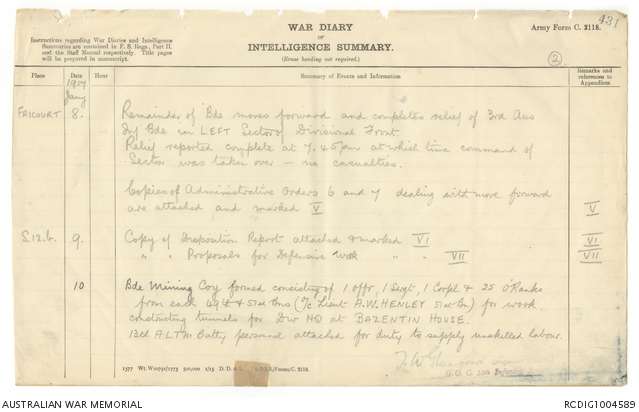 431
WAR DIARY
or
INTELLIGENCE SUMMARY.
(Erase heading not required.)
Army Form C. 2118.
Instructions regarding War Diaries and Intelligence
Summaries are contained in F. S. Regs., Part II.
and the Staff Manual respectively. Title pages
will be prepared in manuscript.
2
Place
Date
Hour
Summary of Events and Information
Remarks and
references to
Appendices
1917
Jany
FRICOURT 8. Remainder of Bde moves forward and completes relief of 3rd Aus
Inf Bde in LEFT Sector of Divisional Front.
Relief reported complete at 7.45pm at which time command of
Sector was taken over - no casualties.
Copies of Administrative Orders 6 and 7 dealing with move forward
are attached and marked V
V
S.12.b. 9. Copy of Disposition Report attached & marked VI
VI
" " Proposals for Defensive work " " VII
VII
10 Bde Mining Coy formed consisting of 1 Offr, 1 Sergt, 1 Corpl & 25 O'Ranks
from each 49th & 51st Bns (T/c Lieut A.W. HENLEY 51st Bn) for work
constructing tunnels for Div HQ at BAZENTIN HOUSE.
13th A.L.T.M. Batty personnel attached for duty to supply unskilled labour.
1577 Wt. W10791/1773 500,000 1/15 D. D. & L. A.D.S.S./Forms/C. 2118.
AUSTRALIAN WAR MEMORIAL
RCDIG1004589